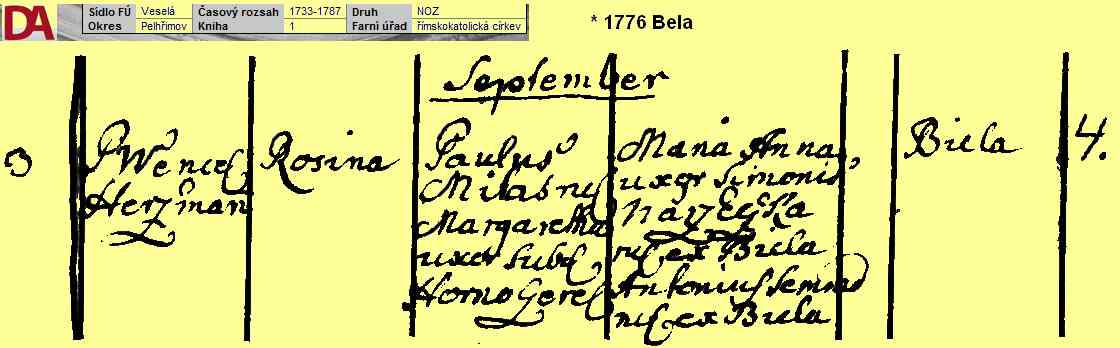 DA
Sídlo FÚ Veselá Časový rozsah 1733-1787 Druh NOZ
Okres Pelhřimov Kniha 1 Farní úřad římskokatolická církev
* 1776 Bela
September
3
P Wencel
Herzman
Rosina
Paulus
Milas
Margaretha
uxor subd
Maria Anna
uxor Simonis
ex Biela
Antonius Semrad
ex Biela
Biela
4.